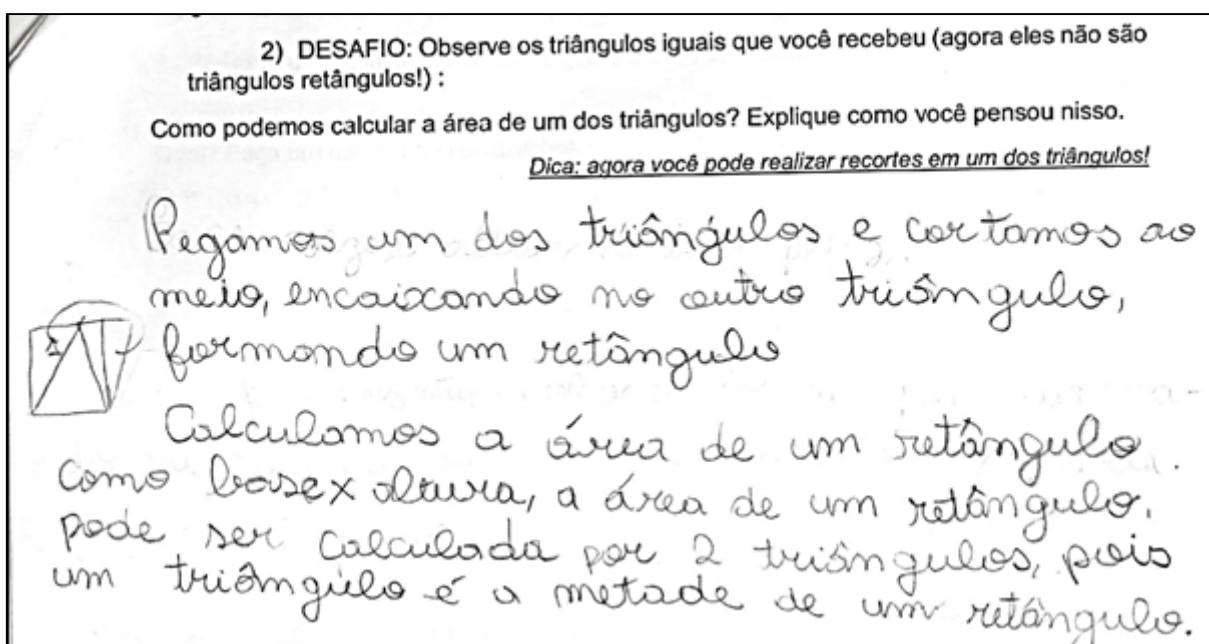 2) DESAFIO: Observe os triângulos iguais que você recebeu (agora eles não são
triângulos retângulos!) :
Como podemos calcular a área de um dos triângulos? Explique como você pensou nisso.
Dica: agora você pode realizar recortes em um dos triângulos!
Pegamos um dos triângulos e cortamos ao
meio, encaixando no outro triângulo,
formando um retângulo
Calculamos a área de um retângulo.
como base x altura, a área de um retângulo.
pode ser calculada por 2 triângulos, pois
um triângulo é a metade de um retângulo.